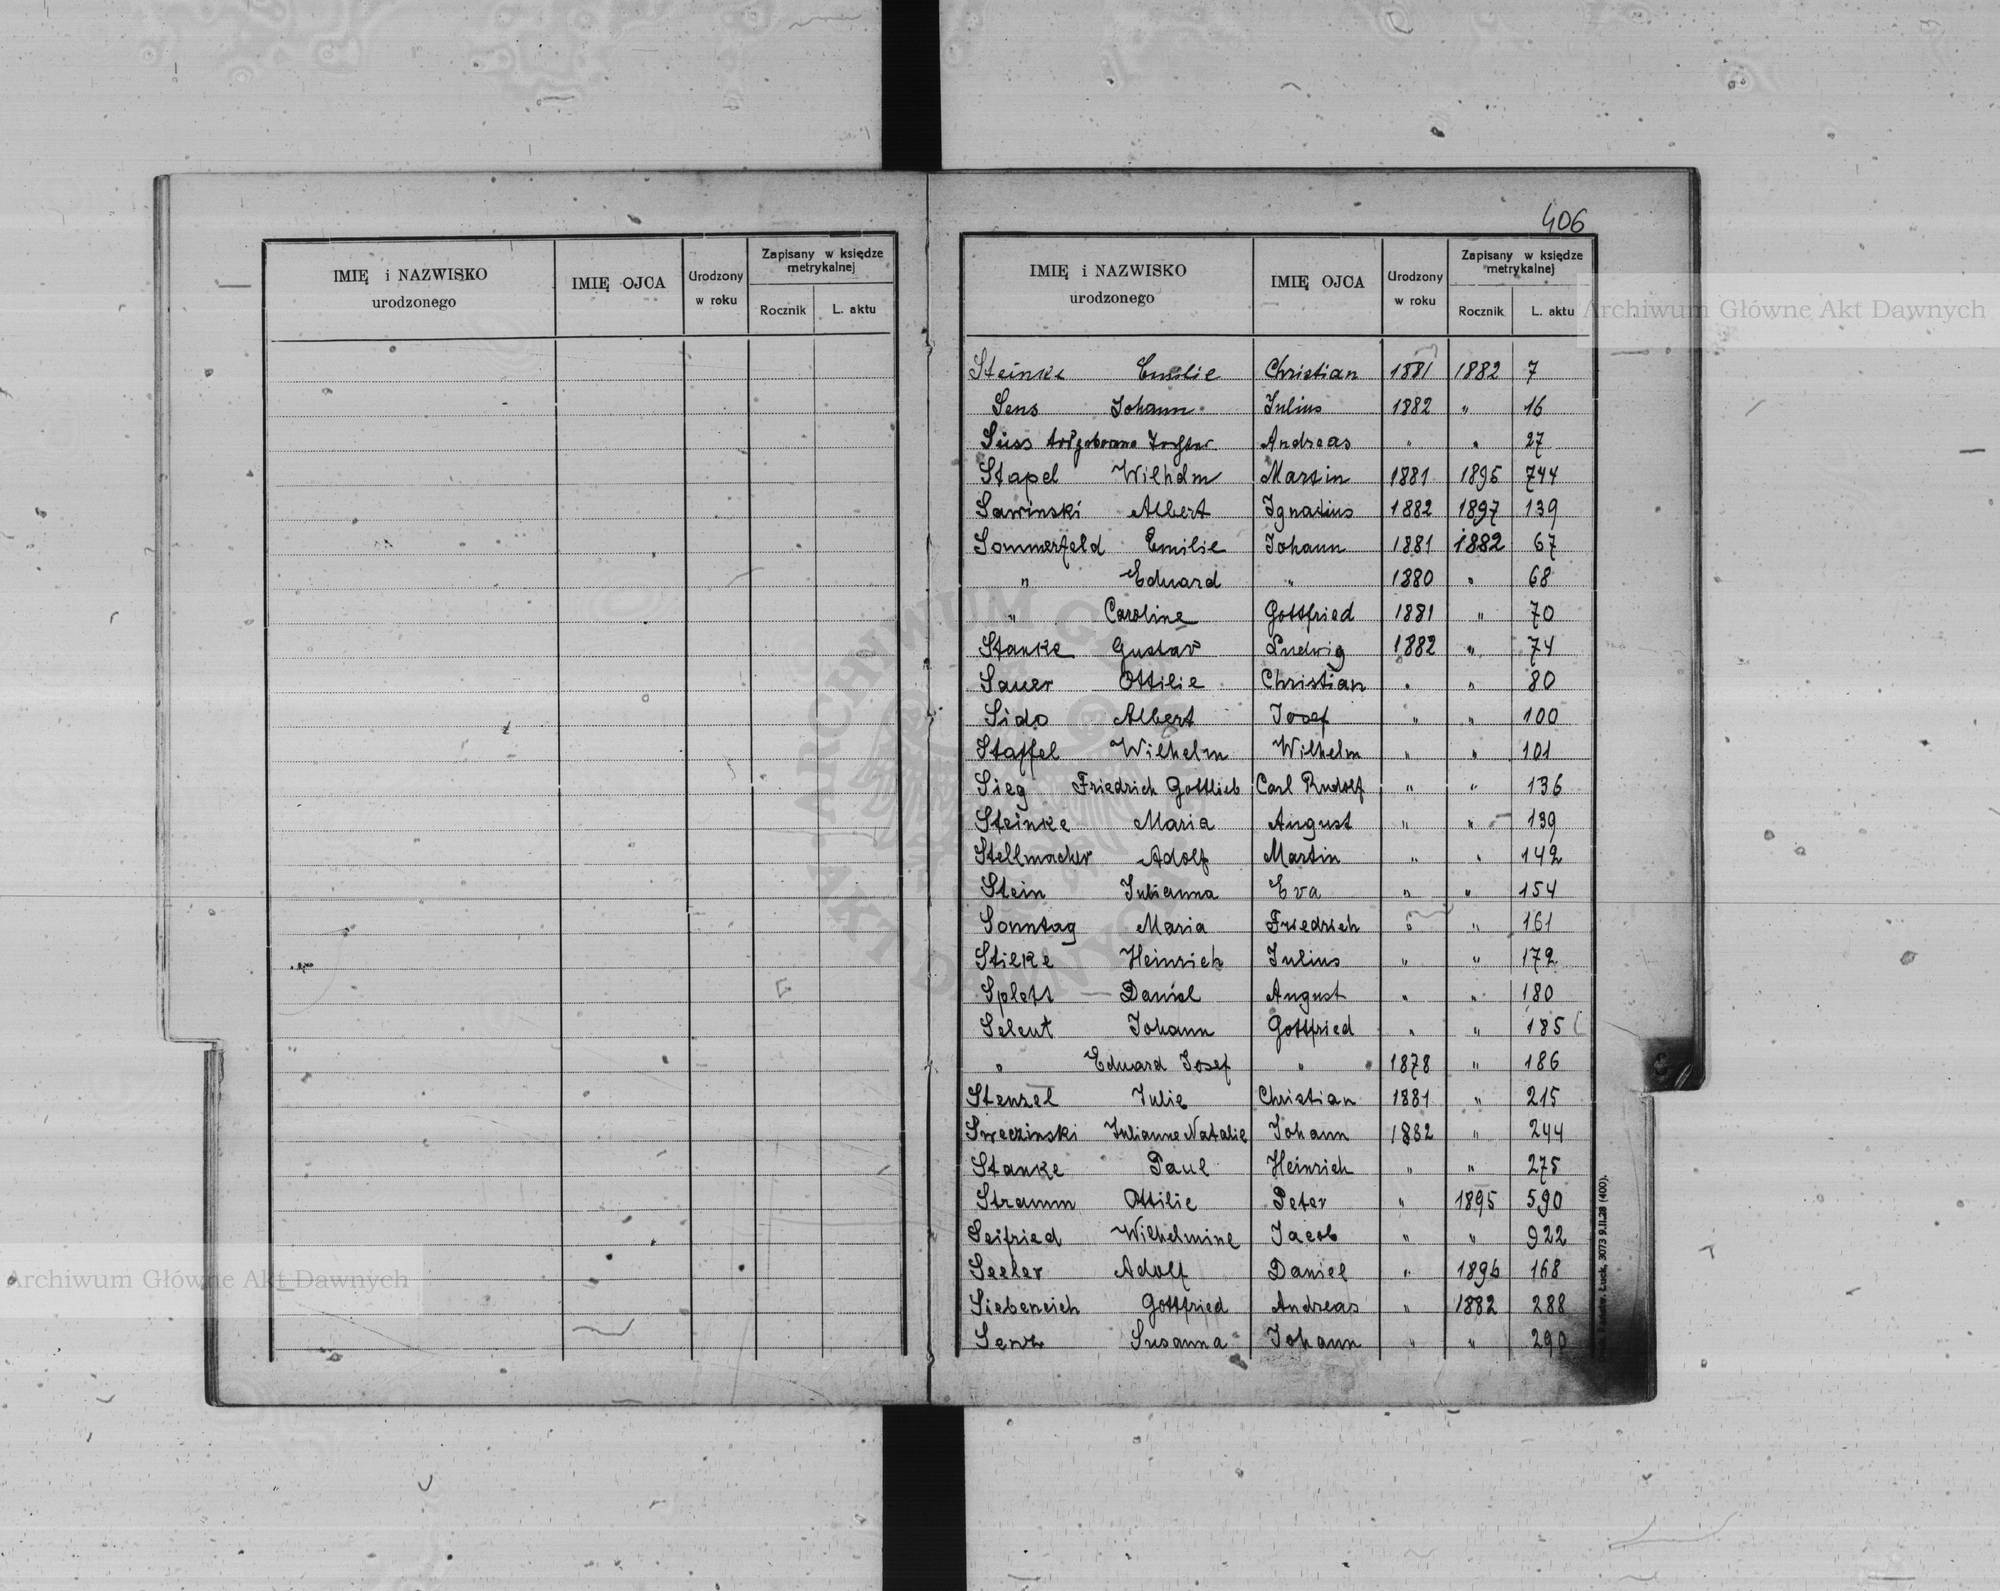 406
IMIĘ i NAZWISKO urodzonego IMIĘ OJCA Urodzony w roku Zapisany w księdze metrykalnej Rocznik L. aktu
IMIĘ i NAZWISKO urodzonego IMIĘ OJCA Urodzony w roku Zapisany w księdze metrykalnej Rocznik L. aktu
Archiwum Główne Akt Dawnych
Steinke Emilie Christian 1881 1882 7
Sens Johann Julius 1882 " 16
Süss Andreas " " 27
Stapel Wilhelm Martin 1881 1895 744
Sawinski Albert Ignatius 1882 1897 139
Sommerfeld Emilie Johann 1881 1882 67
" Eduard " 1880 " 68
" Caroline Gottfried 1881 " 70
Stanke Gustav Ludwig 1882 " 74
Sauer Ottilie Christian " " 80
Sido Albert Josef " " 100
Staffel Wilhelm Wilhelm " " 101
Sieg Friedrich Gottlieb Carl Rudolf " " 136
Steinke Maria August " " 139
Stellmacher Adolf Martin " " 142
Stein Julianna Eva " " 154
Sonntag Maria Friedrich " " 161
Stielke Heinrich Julius " " 172
Splett Daniel August " " 180
Selent Johann Gottfried " " 185
" Eduard Josef " 1878 " 186
Stenzel Julie Christian 1881 " 215
Sweczinski Julianne Natalie Johann 1882 " 244
Stanke Paul Heinrich " " 275
Stramm Ottilie Peter " 1895 590
Seifried Wilhelmine Jacob " " 922
Seeler Adolf Daniel " 1896 168
Siebeneich Gottfried Andreas " 1882 288
Susanna Johann " " 290
Łuck, 3073 9.II.28 (400).
ARCHIWUM GŁÓWNE AKT DAWNYCH
Archiwum Główne Akt Dawnych